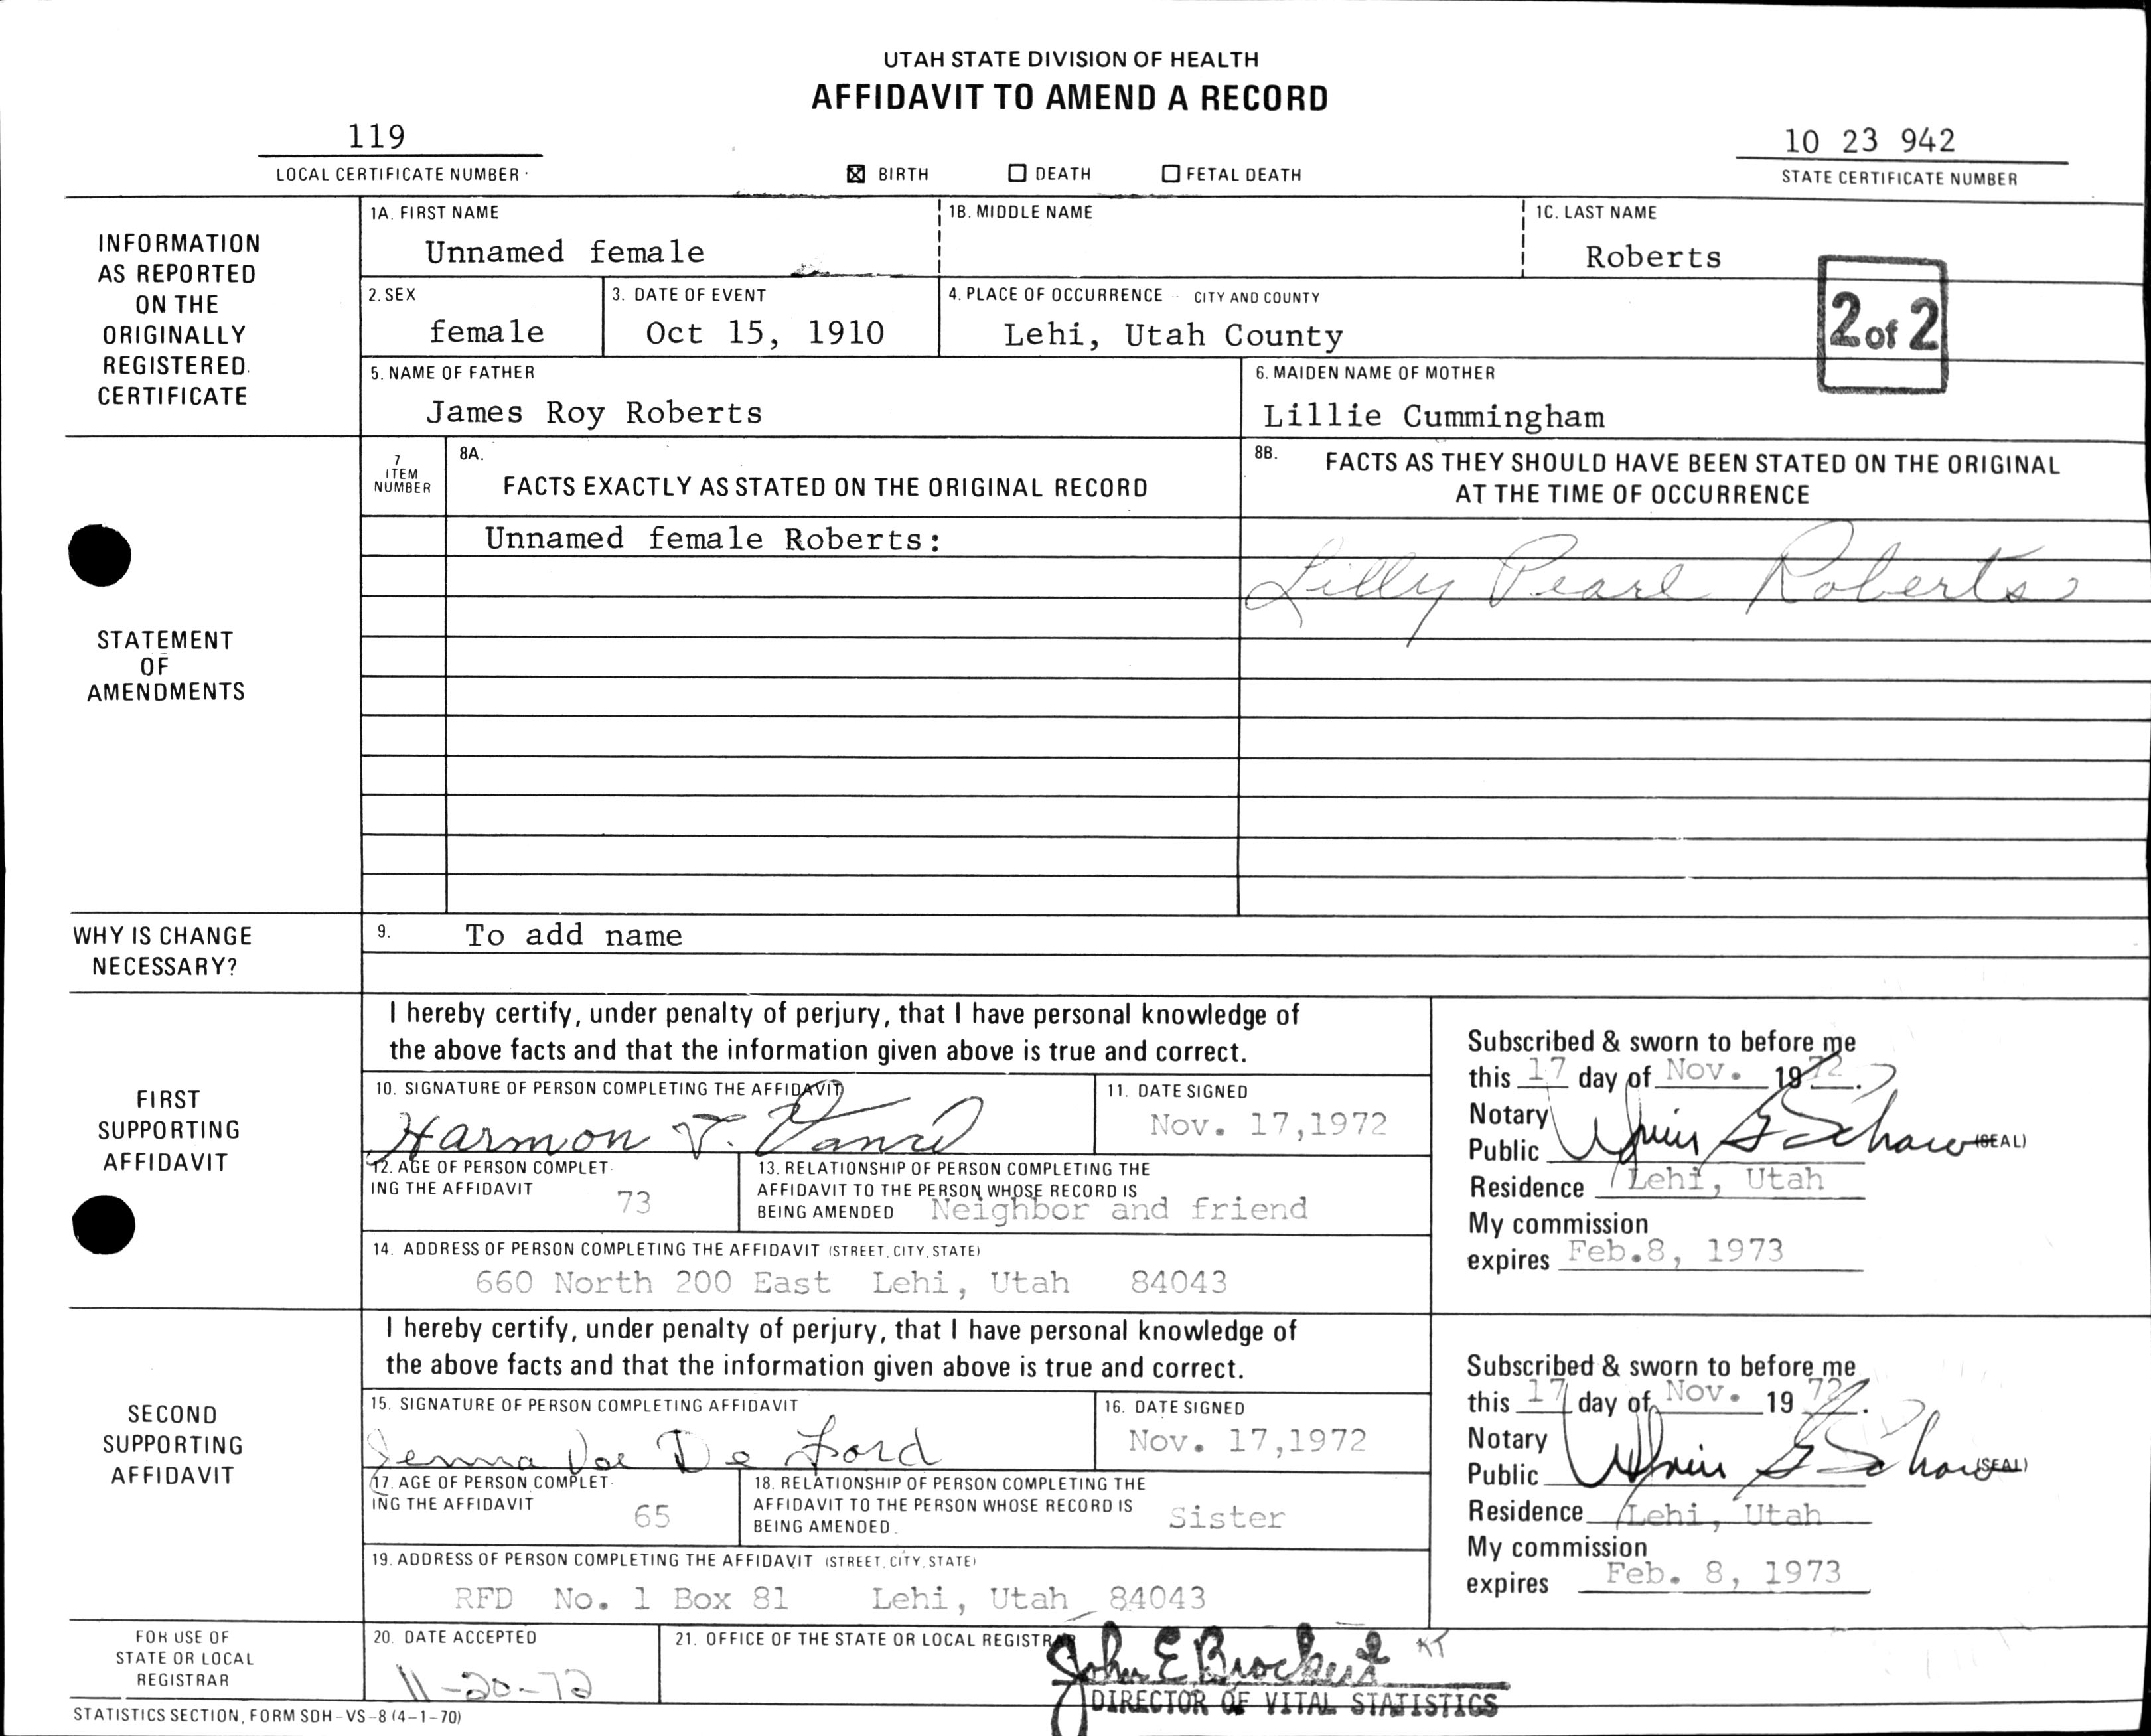 UTAH STATE DIVISION OF HEALTH
AFFIDAVIT TO AMEND A RECORD
119
LOCAL CERTIFICATE NUMBER
☒ BIRTH ☐ DEATH ☐ FETAL DEATH
10 23 942
STATE CERTIFICATE NUMBER
INFORMATION
AS REPORTED
ON THE
ORIGINALLY
REGISTERED
CERTIFICATE
1A. FIRST NAME
Unnamed female
1B. MIDDLE NAME
1C. LAST NAME
Roberts
2 of 2
2. SEX
female
3. DATE OF EVENT
Oct 15, 1910
4. PLACE OF OCCURRENCE CITY AND COUNTY
Lehi, Utah County
5. NAME OF FATHER
James Roy Roberts
6. MAIDEN NAME OF MOTHER
Lillie Cummingham
STATEMENT
OF
AMENDMENTS
7
ITEM
NUMBER
8A.
FACTS EXACTLY AS STATED ON THE ORIGINAL RECORD
8B. FACTS AS THEY SHOULD HAVE BEEN STATED ON THE ORIGINAL
AT THE TIME OF OCCURRENCE
Unnamed female Roberts:
Lilly Pearl Roberts
WHY IS CHANGE
NECESSARY?
9. To add name
FIRST
SUPPORTING
AFFIDAVIT
I hereby certify, under penalty of perjury, that I have personal knowledge of
the above facts and that the information given above is true and correct.
10. SIGNATURE OF PERSON COMPLETING THE AFFIDAVIT
Harmon V.
11. DATE SIGNED
Nov. 17,1972
12. AGE OF PERSON COMPLET-
ING THE AFFIDAVIT 73
13. RELATIONSHIP OF PERSON COMPLETING THE
AFFIDAVIT TO THE PERSON WHOSE RECORD IS
BEING AMENDED Neighbor and friend
14. ADDRESS OF PERSON COMPLETING THE AFFIDAVIT (STREET, CITY, STATE)
660 North 200 East Lehi, Utah 84043
Subscribed & sworn to before me
this 17 day of Nov. 1972.
Notary
Public (SEAL)
Residence Lehi, Utah
My commission
expires Feb.8, 1973
SECOND
SUPPORTING
AFFIDAVIT
I hereby certify, under penalty of perjury, that I have personal knowledge of
the above facts and that the information given above is true and correct.
15. SIGNATURE OF PERSON COMPLETING AFFIDAVIT
De Ford
16. DATE SIGNED
Nov. 17,1972
17. AGE OF PERSON COMPLET-
ING THE AFFIDAVIT 65
18. RELATIONSHIP OF PERSON COMPLETING THE
AFFIDAVIT TO THE PERSON WHOSE RECORD IS
BEING AMENDED. Sister
19. ADDRESS OF PERSON COMPLETING THE AFFIDAVIT (STREET, CITY, STATE)
RFD No. 1 Box 81 Lehi, Utah 84043
Subscribed & sworn to before me
this 17 day of Nov. 1972.
Notary
Public (SEAL)
Residence Lehi, Utah
My commission
expires Feb. 8, 1973
FOR USE OF
STATE OR LOCAL
REGISTRAR
20. DATE ACCEPTED
11-20-72
21. OFFICE OF THE STATE OR LOCAL REGISTRAR
John E Brockert KT
DIRECTOR OF VITAL STATISTICS
STATISTICS SECTION, FORM SDH-VS-8 (4-1-70)